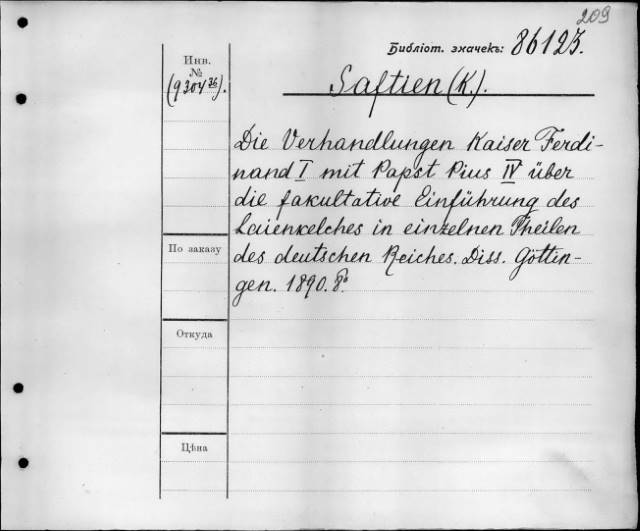 209
Библіот. значекъ: 86123.
Инв.
№
(9304 36).
Saftien (K.).
Die Verhandlungen Kaiser Ferdi-
nand I mit Papst Pius IV über
die fakultative Einführung des
Laienkelches in einzelnen Theilen
des deutschen Reiches. Diss. Göttin-
gen. 1890. 8º.
По заказу
Откуда
Цѣна